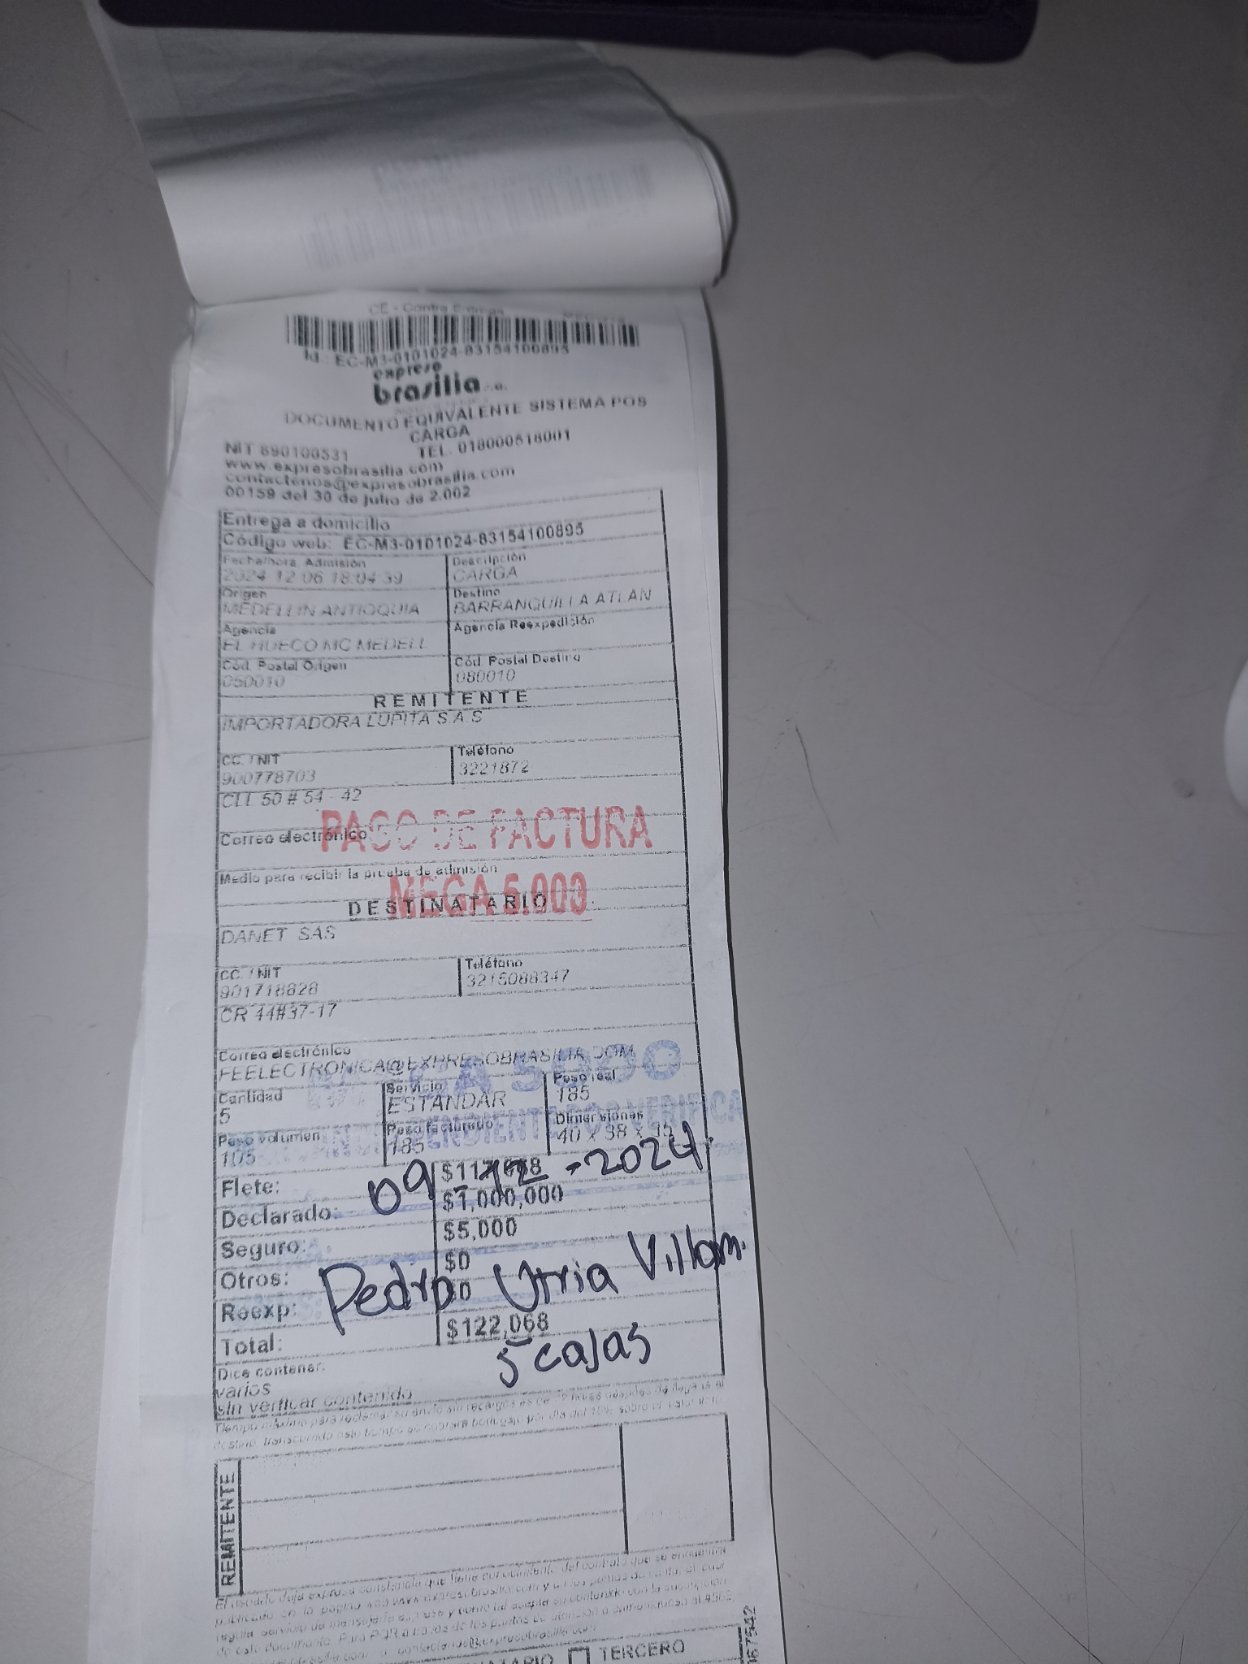 CE - Contra Entrega
Id.: EC-M3-0101024-83154100895
expreso
brasilia s.a.
DOCUMENTO EQUIVALENTE SISTEMA POS
CARGA
NIT 890100531 TEL. 018000518001
www.expresobrasilia.com
contactenos@expresobrasilia.com
00159 del 30 de julio de 2.002
Entrega a domicilio
Código web: EC-M3-0101024-83154100895
Fecha/hora Admisión Descripción
2024-12-06 18:04:39 CARGA
Origen Destino
MEDELLIN ANTIOQUIA BARRANQUILLA ATLAN
Agencia Agencia Reexpedición
EL HUECO MC MEDELL
Cód. Postal Origen Cód. Postal Destino
050010 080010
REMITENTE
IMPORTADORA LUPITA S A S
CC. / NIT Teléfono
900778703 3221872
CLL 50 # 54 - 42
PAGO DE FACTURA
Correo electrónico
Medio para recibir la prueba de admisión
MEGA 5.000
DESTINATARIO
DANET SAS
CC. / NIT Teléfono
901718828 3215088347
CR 44#37-17
Correo electrónico
FEELECTRONICA@EXPRESOBRASILIA.COM
5000
Cantidad Servicio Peso real
5 ESTANDAR 185
PENDIENTE POR VERIFICA
Peso volumen Peso facturado Dimensiones
105 185 40 x 38 x
Flete:
09-12-2024
Declarado: $1,000,000
Seguro: $5,000
Otros: $0
Reexp: $0
Pedro Utria Villam.
Total: $122,068
5 cajas
Dice contener:
varios
sin verificar contenido
REMITENTE
TERCERO